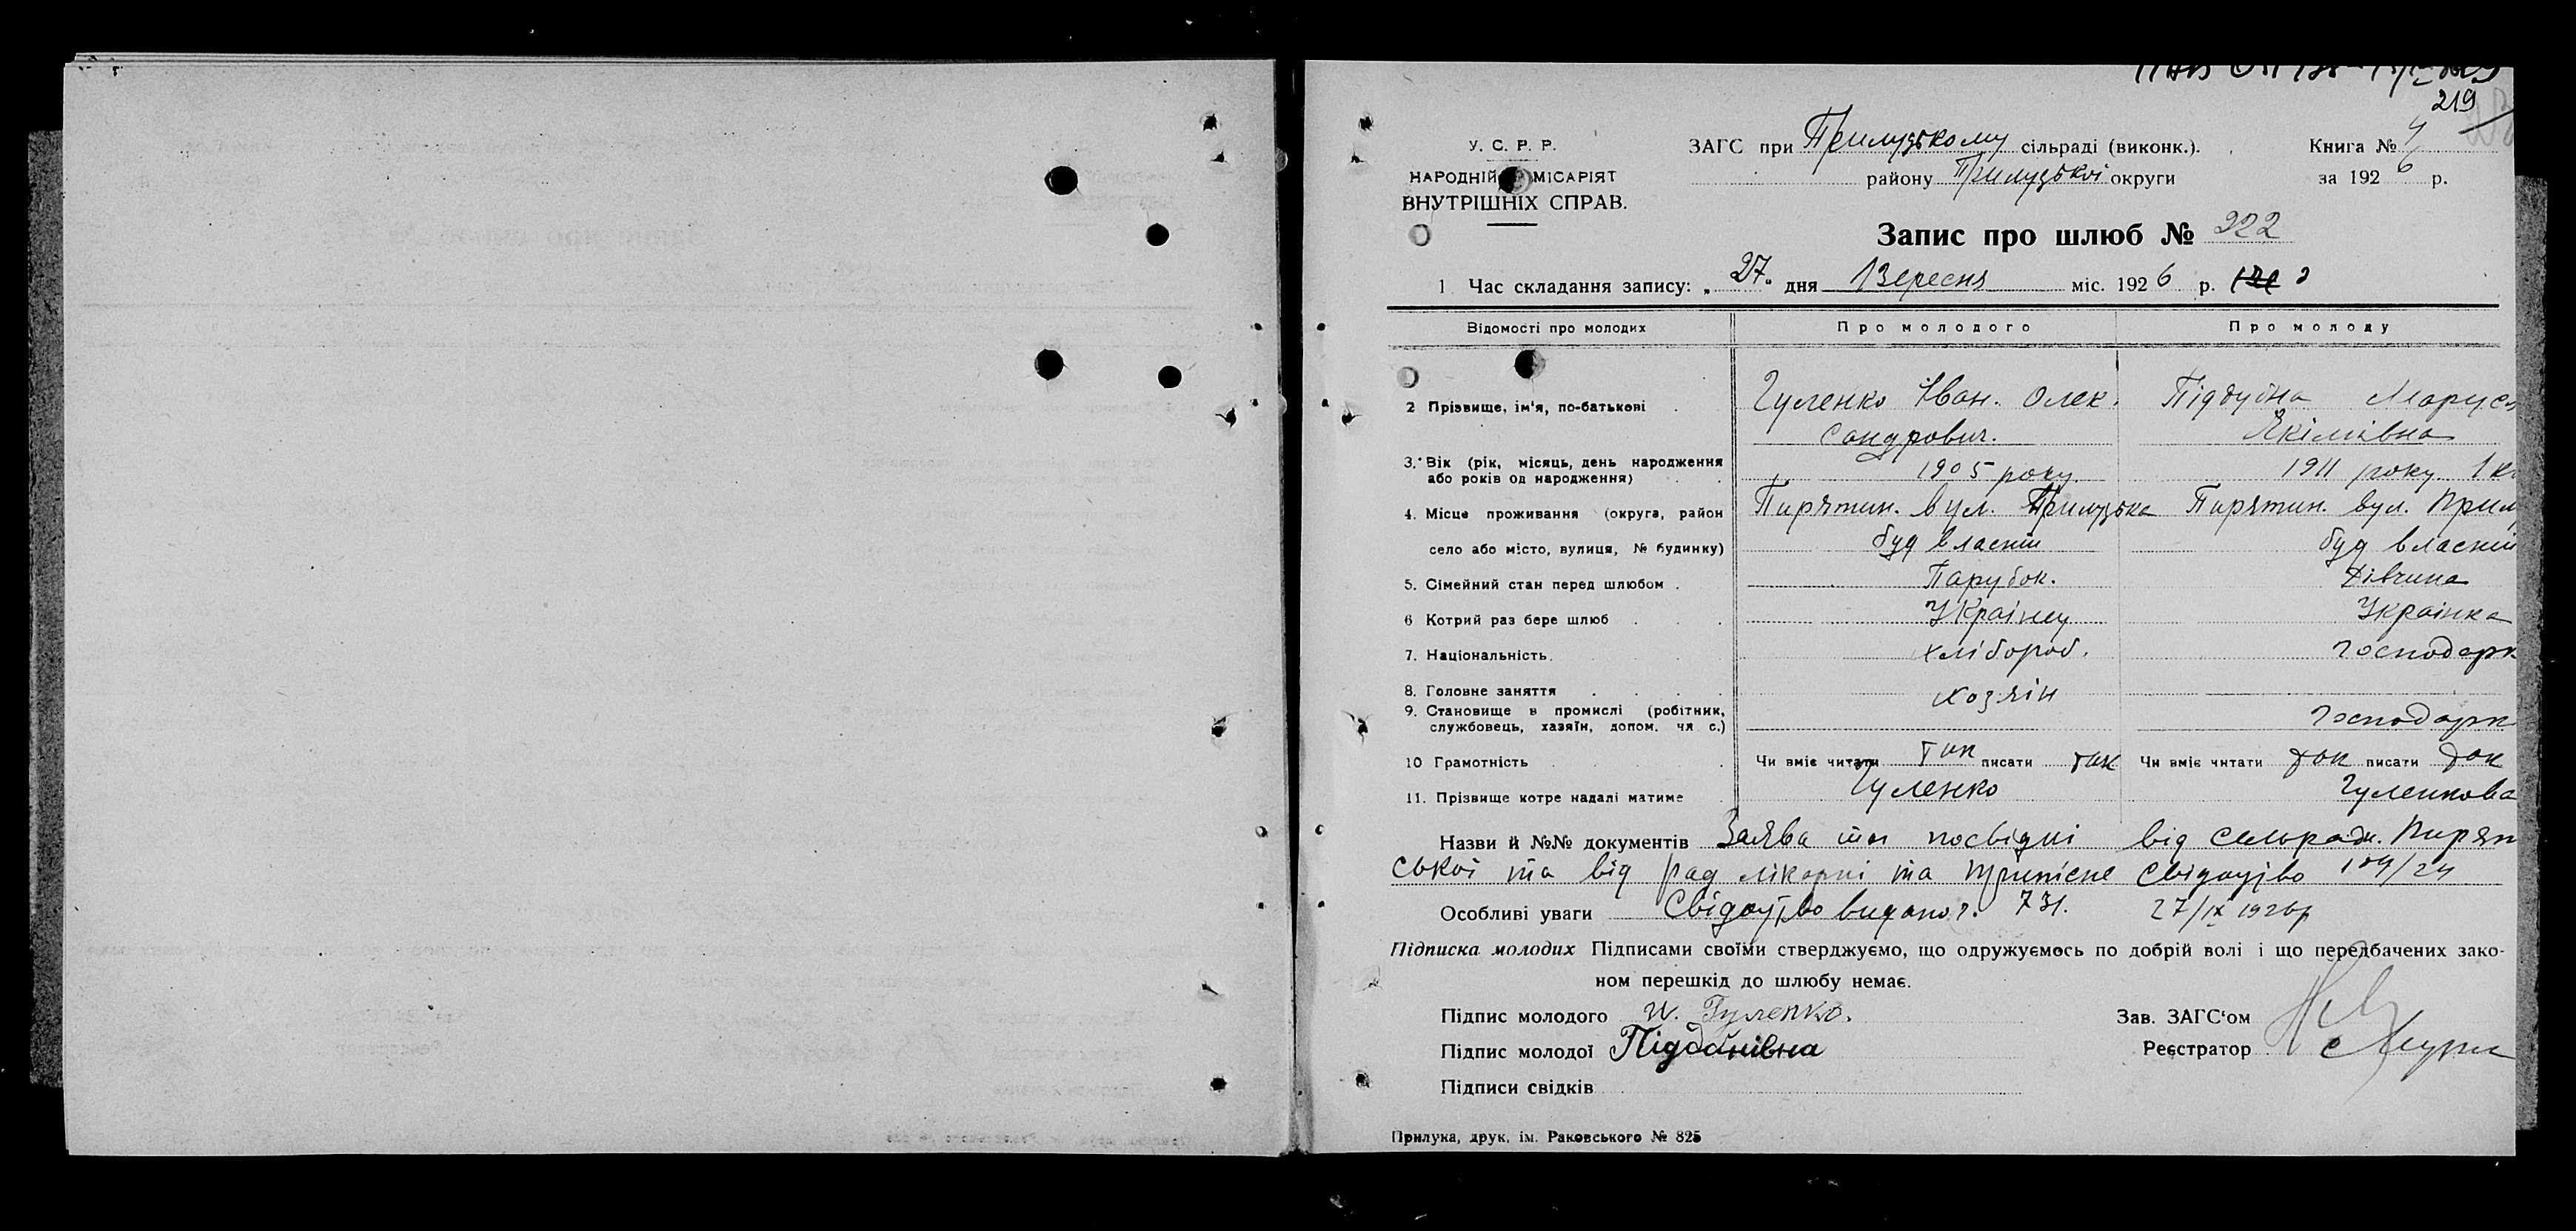 219
У. С. Р. Р.
ЗАГС при Прилуцькому сільраді (виконк.). Книга № 4
НАРОДНІЙ МІСАРІЯТ
району Прилуцької округи за 1926 р.
ВНУТРІШНІХ СПРАВ.
Запис про шлюб № 222
1 Час складання запису: „27" дня Вересня міс. 1926 р.
Відомості про молодих Про молодого Про молоду
2 Прізвище, ім'я, по-батькові Гуленко Іван. Олек. Маруся
сандрович. Якімівна
3. Вік (рік, місяць, день народження 1905 року. 1911 року
або років од народження)
4. Місце проживання (округа, район Пирятин. вул. Прилузька Пирятин. вул. Прилу
село або місто, вулиця, № будинку) буд власний буд власний
5. Сімейний стан перед шлюбом . Парубок. Дівчина
6 Котрий раз бере шлюб Українец Українка
7. Національність. хлібороб. господарк
8. Головне заняття хозяін
9. Становище в промислі (робітник, службовець, хазяїн, допом. чл с.) господарк
10 Грамотність Чи вміє читати так писати так Чи вміє читати так писати так
11. Прізвище котре надалі матиме Гуленко Гуленкова
Назви й №№ документів Заява та посвідкі від сельради. Пирят
ської та від рад лікарні та
Особливі уваги 731. 27/IX 1926р
Підписка молодих Підписами своїми стверджуємо, що одружуємось по добрій волі і що передбачених зако-
ном перешкід до шлюбу немає.
Підпис молодого И. Гуленко. Зав. ЗАГС'ом
Підпис молодої Реєстратор
Підписи свідків
Прилука, друк. ім. Раковського № 825